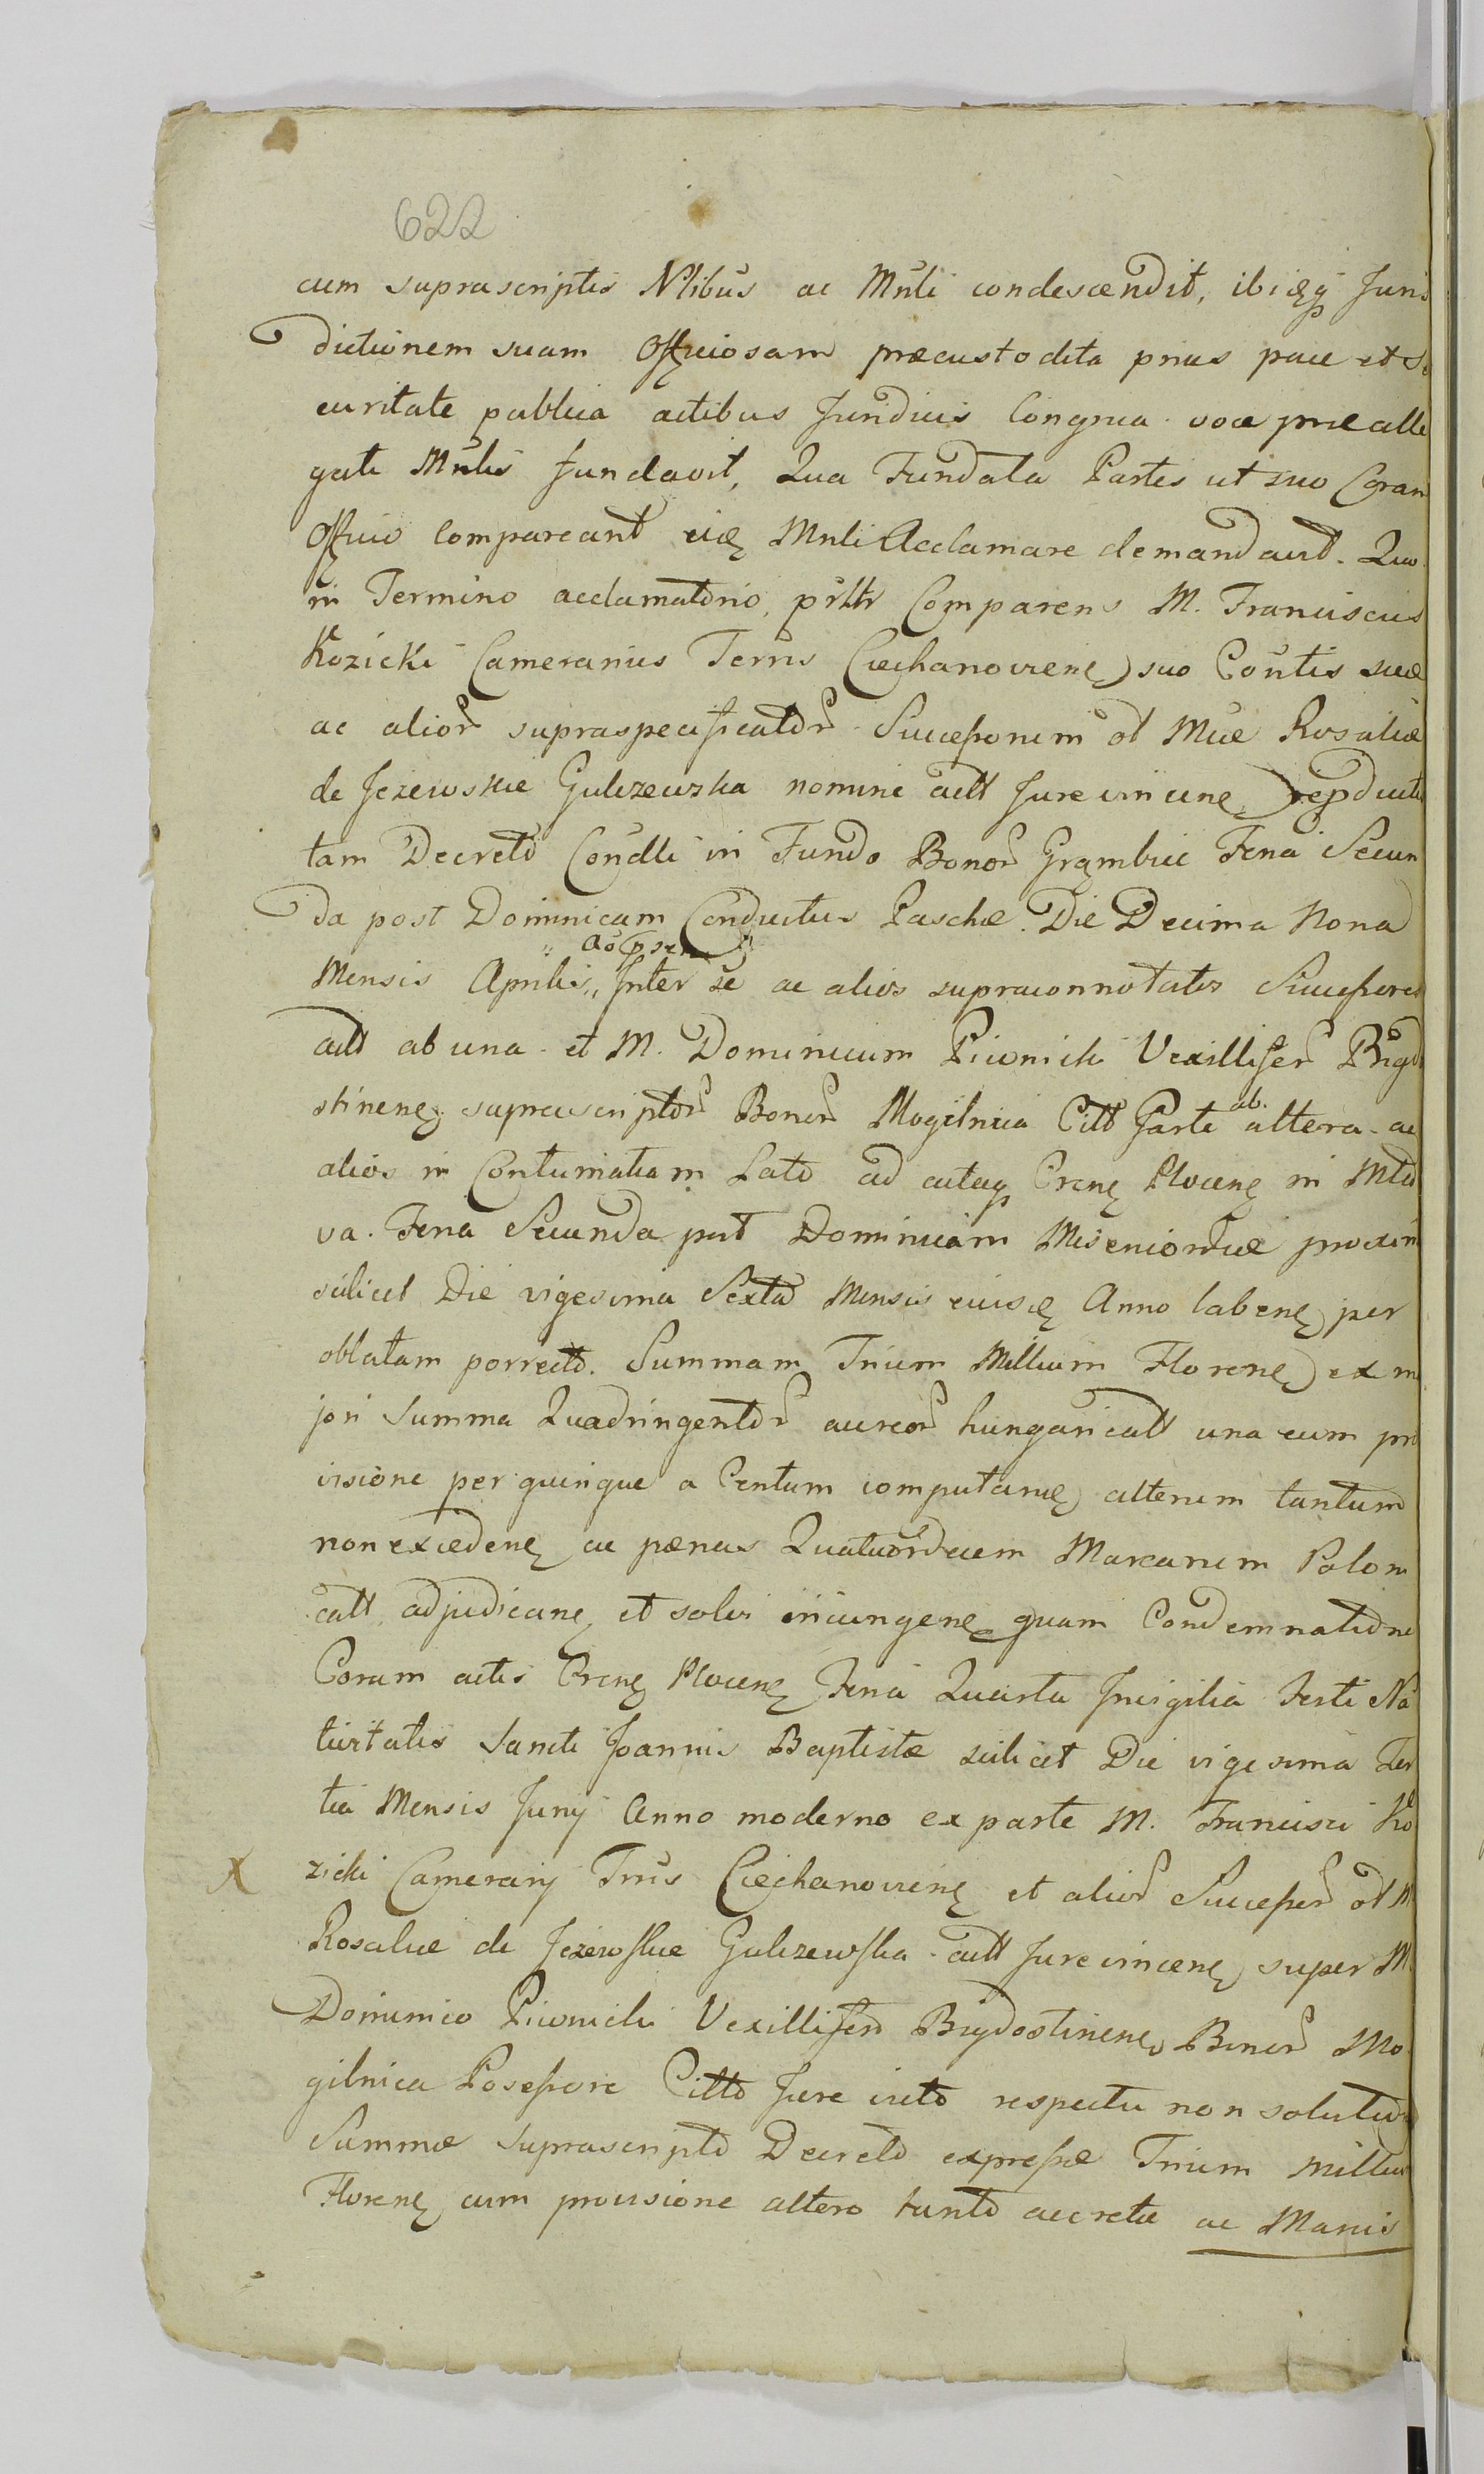 622
cum suprascriptis Nlibus ac Mnli condescendit, ibiqȝ Juris
dictionem suam Officiosam præcustodita prius pace et Se
curitate publica actibus Juridicis Congrua voce præalle
gati Mnlis fundavit, Qua Fundata Partes ut suo Coram
Officio Compareant eidȝ Mnli Acclamare demandavit. Quo
in Termino acclamatorio, prltr Comparens M. Franciscus
Kozicki Camerarius Terris Ciechanoviens suo Contis suæ
ac alior supraspecificator Successorum ol Mcæ Rosaliæ
de Jezewskie Gulczewska nomine actt Jure vincene
tam Decreto Condli in Fundo Bonor Grąmbice Feria Secun
da post Dominicam Conductus Paschæ Die Decima Nona
Mensis Aprilis,, Inter se ac alios supraconnotatos Successores
actt ab una et M. Dominicum Piwnicki Vexillifer Bryd
stinene suprascriptor Bonor Mogilnica Citt Parte ab altera ac
alios in Contumatiam Lato ad acta Crene Plocene in
va. Feria Secunda post Dominicam Misericordiæ proxim
scilicet Die vigesima Sexta Mensis eiusdȝ Anno labene per
oblatam porrecto. Summam Trium Millium Florene ex ma
jori Summa Quadringentor aureor hungaricall una cum pro
visione per quinque a Centum computane alterum tantum
non excedene ac pænas Quatuordecem Marcarum Poloni
call adjudicane et solvi iniungene quam Condemnatione
Coram actis Crene Plocene Feria Quarta Invigilia Festi Na
tivitatis Sancti Joannis Baptistæ scilicet Die vigesima Ter
tia Mensis Junij Anno moderno ex parte M. Francisci Ko
zicki Camerarij Trris Ciechanoviene et alior Successor ol M
Rosaliæ de Jezewskie Gulczewska actt Jure vincene super M.
Dominico Piwnicki Vexillifero Brydostinene Bonor Mo
gilnica Possessore Citto Jure victo respectu non solutæ
Summæ suprascripto Decreto expressæ Trium Millium
Florene cum provisione altero tanto accretæ ac Marcis